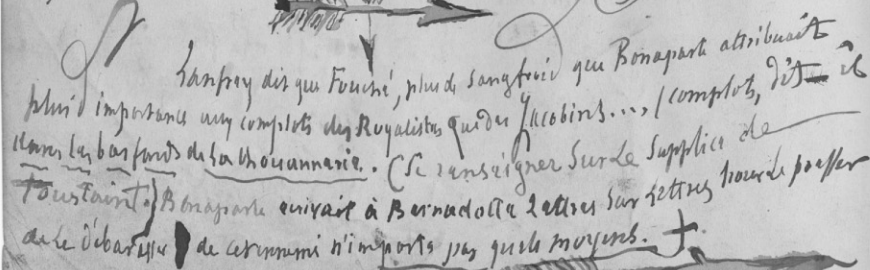 Lanfrey dit que Fouché, plus de sangfroid que Bonaparte attribuait
plus d'importance aux complots des Royalistes que des Jacobins..., (complots, dit-il
dans les bas fonds de la chouannerie. (Se renseigner sur le supplice de
Toustaint.) Bonaparte écrivait à Bernadotte Lettres sur Lettres pour le presser
de le débarasser de cet ennemi n'importe par quels moyens.